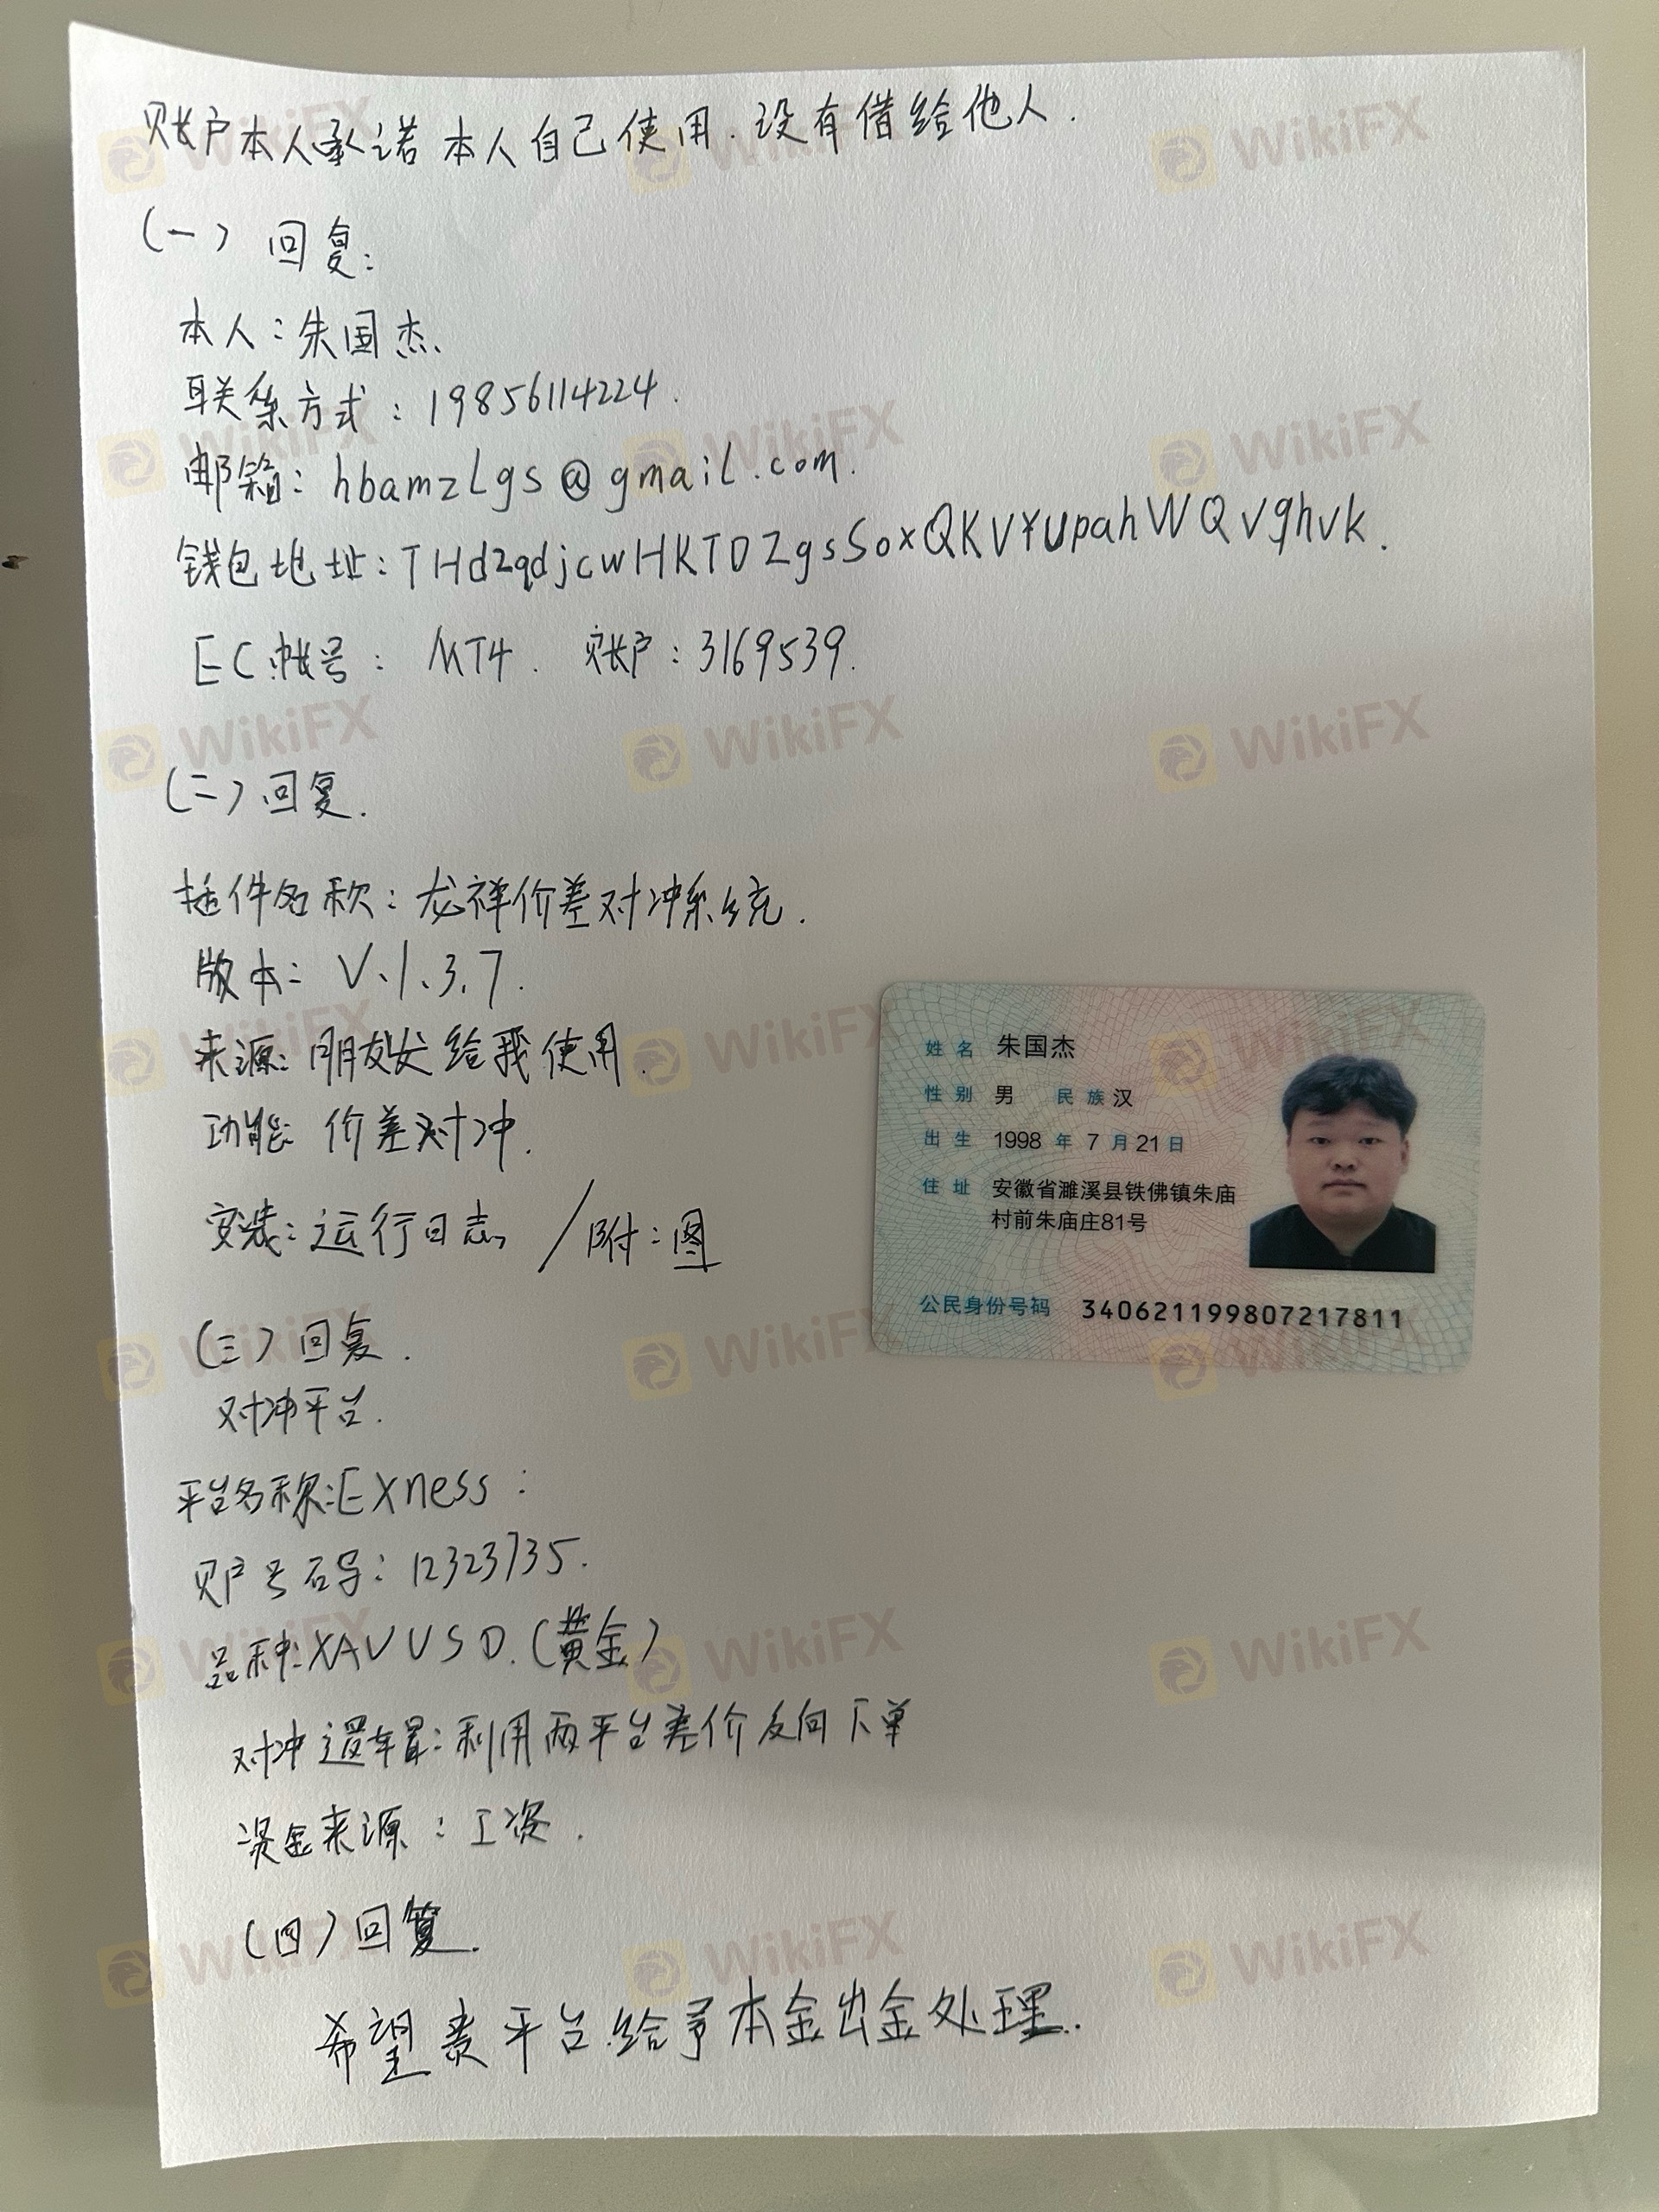 账户本人承诺本人自己使用.没有借给他人.
(一) 回复:
本人:朱国杰.
联系方式:19856114224.
邮箱:hbamzLgs@gmail.com.
钱包地址:
EC帐号: MT4. 账户:3169539.
(二)回复.
插件名称:龙祥价差对冲系统.
版本: V.1.3.7.
来源:朋友发给我使用.
功能: 价差对冲.
安装:运行日志 / 附:图
(三)回复.
对冲平台.
平台名称:EXness:
账户号码:12323735.
品种:XAUUSD.(黄金)
对冲逻辑:利用两平台差价反向下单
资金来源:工资.
(四)回复.
希望贵平台给予本金出金处理.
姓名 朱国杰
性别 男 民族 汉
出生 1998 年 7 月 21 日
住址 安徽省濉溪县铁佛镇朱庙
村前朱庙庄81号
公民身份号码 340621199807217811
WikiFX